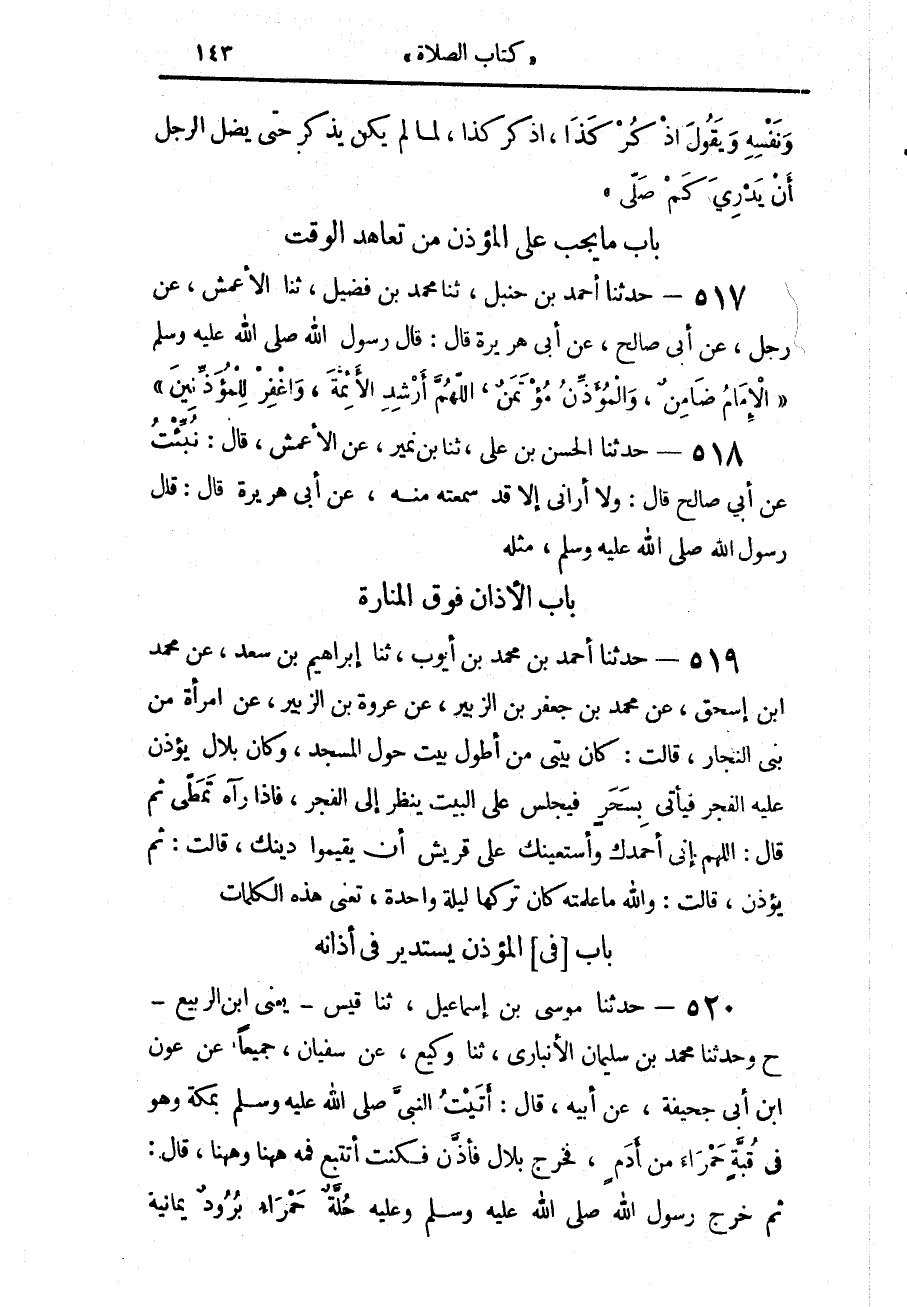 « كتاب الصلاة » ١٤٣
وَنَفْسِهِ وَيَقُولَ اذْكُرْ كَذَا ، اذكر كذا ، لما لم يكن يذكر حتى يضل الرجل
أَنْ يَدْرِيَ كَمْ صَلَّى »
باب ما يجب على المؤذن من تعاهد الوقت
٥١٧ — حدثنا أحمد بن حنبل ، ثنا محمد بن فضيل ، ثنا الأعمش ، عن
رجل ، عن أبى صالح ، عن أبى هريرة قال : قال رسول الله صلى الله عليه وسلم
« الْإِمَامُ ضَامِنٌ ، وَالْمُؤَذِّنُ مُؤْتَمَنٌ ، اللّهُمَّ أَرْشِدِ الأَئِمَّةَ ، وَاغْفِرْ لِلْمُؤَذِّنِينَ »
٥١٨ — حدثنا الحسن بن على ، ثنا بن نمير ، عن الأعمش ، قال : نُبِّئْتُ
عن أبي صالح قال : ولا أرانى إلا قد سمعته منه ، عن أبى هريرة قال : قال
رسول الله صلى الله عليه وسلم ، مثله
باب الأذان فوق المنارة
٥١٩ — حدثنا أحمد بن محمد بن أيوب ، ثنا إبراهيم بن سعد ، عن محمد
ابن إسحق ، عن محمد بن جعفر بن الزبير ، عن عروة بن الزبير ، عن امرأة من
بنى النجار ، قالت : كان بيتى من أطول بيت حول المسجد ، وكان بلال يؤذن
عليه الفجر فيأتى بِسَحَرٍ فيجلس على البيت ينظر إلى الفجر ، فاذا رآه تَمَطَّى ثم
قال : اللهم إنى أحمدك وأستعينك على قريش أن يقيموا دينك ، قالت : ثم
يؤذن ، قالت : والله ما علمته كان تركها ليلة واحدة ، تعنى هذه الكلمات
باب [فى] المؤذن يستدير فى أذانه
٥٢٠ — حدثنا موسى بن إسماعيل ، ثنا قيس — يعنى ابن الربيع —
ح وحدثنا محمد بن سليمان الأنبارى ، ثنا وكيع ، عن سفيان ، جميعاً عن عون
ابن أبى جحيفة ، عن أبيه ، قال : أَتَيْتُ النبىَّ صلى الله عليه وسلم بمكة وهو
فى قُبَّةٍ حَمْرَاءَ من أَدَمٍ ، فخرج بلال فأذَّن فكنت أتتبع فمه ههنا وههنا ، قال :
ثم خرج رسول الله صلى الله عليه وسلم وعليه حُلَّةٌ حَمْرَاءُ بُرُودٌ يمانية